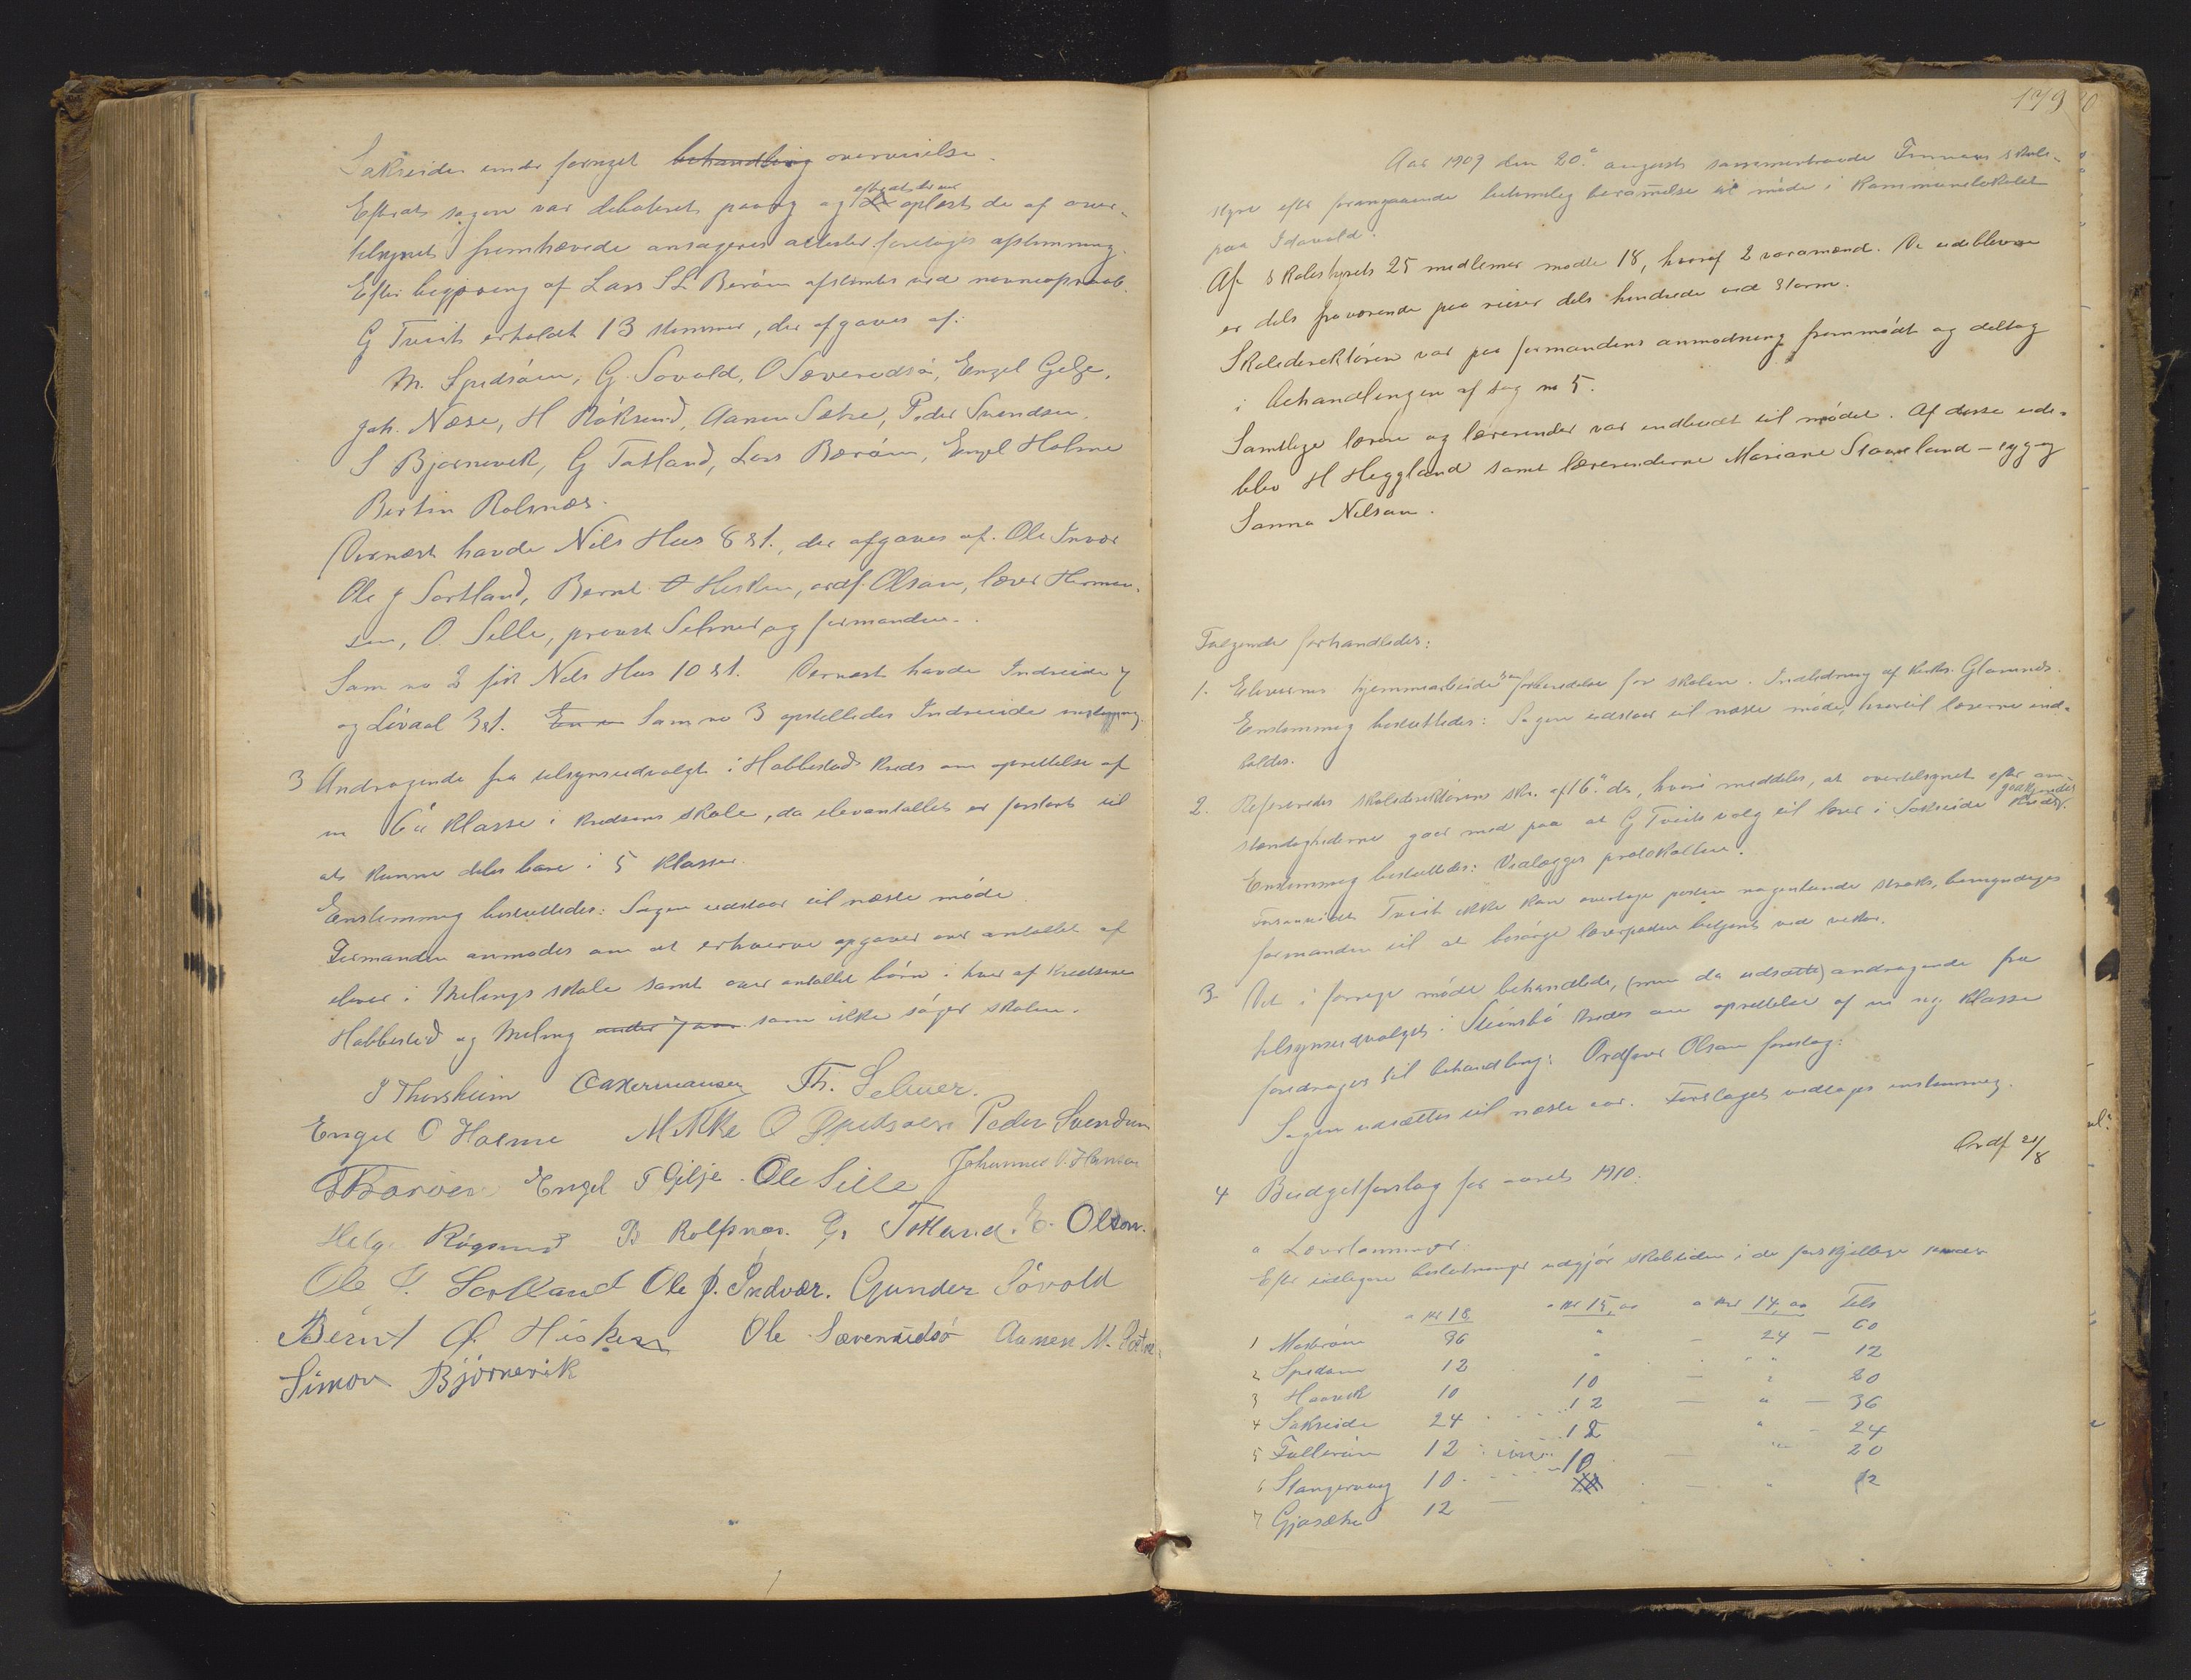 Sakseide under forrigst behandling overværelse.
Efterat sagen var debateret paany og efterat der var oplæst de af over-
tilsynet fremhævede ansøgeres attester foretoges afstemning.
Efter begjæring af Lars S L Børøen afstemtes ved navneopraab.
G Tveit erholdt 13 stemmer, der afgaves af:
M. Spidsøen, G. Søvold, O Sævereidsø, Engel Gilje,
Joh. Næse, H Røksund, Aanen Sætre, Peder Svendsen,
S Bjørnevik, G Totland, Lars Børøen, Engel Holme
Bertin Rolsnæs.
Dernæst havde Nils Hus 8 st., der afgaves af. Ole Indvær
Ole J Sortland, Bernt Ø Hisken, ordf. Olsen, lærer Herman-
sen, O. Sille, provst Selmer og formanden.
Som no 2 fik Nils Hus 10 st. Dernæst havde Indreeide 7
og Løvaal 3 st. Som no 3 opstilledes Indreeide enstemmig.
3 Andragende fra tilsynsudvalget i Habbestad kreds om oprettelse af
en 6te klasse i kredsens skole, da elevantallet er for stort til
at kunne deles bare i 5 klasser.
Enstemmig besluttedes: Sagen udstaar til næste møde
Formanden anmodes om at erhverve opgaver over antallet af
elever i Melings skole samt over antallet børn i hver af kredsene
Habbestad og Meling under 7 aar som ikke søger skolen.
J Thorsheim C Axermansen Th. Selmer.
Engel O Holme Mikke O Spidsøen Peder Svendsen
Engel T Gilje. Ole Sille Johannes O. Hansen
Helge Røgsund B Rolfsnæs. G. Totland. E. Olson.
Ole J. Sortland Ole J. Indvær. Gunder Søvold
Bernt Ø. Hisken Ole Sævereidsø Aanen M. Sætre.
Simon Bjørnevik
179
Aar 1909 den 20de august sammentraadte Finnaas skole-
styre efter forangaaende lovlig berammelse til møde i kommunelokalet
paa Idavold.
Af skolestyrets 25 medlemer mødte 18, hvoraf 2 varamænd. De udeblevne
er dels fraværende paa reiser dels hindrede ved storm.
Skoledirektøren var paa formandens anmodning fremmødt og deltog
i behandlingen af sag no 5.
Samtlige lærere og lærerinder var indbudt til mødet. Af disse ude-
blev H Heggland samt lærerinderne Mariane Stavland – syg og
Sanna Nilsen.
Følgende forhandledes:
1. Elevernes hjemmearbeide som forberedelse for skolen. Indledning af kirkes. Glomnes.
Enstemmig besluttedes: Sagen udstaar til næste møde, hvortil lærerne ind-
kaldes.
2. Refereredes skoledirektørens skr. af 16de ds, hvori meddeles, at overtilsynet efter om-
stændighederne gaar med paa at G Tveits valg til lærer i Sakseide kreds godkjendes.
Enstemmig besluttedes: Vedlægges protokollen.
Forsaavidt Tveit ikke kan overtage posten nogenlunde straks, bemyndiges
formanden til at besørge lærerposten betjent ved vikar.
3. Det i forrige møde behandlede, (men da udsatte) andragende fra
tilsynsudvalget i Steinsbø kreds om oprettelse af en ny klasse
foredroges til behandling: Ordfører Olsen foreslog:
Sagen udsættes til næste aar. Forslaget vedtoges enstemmig.
Ordf 21/8
4 Budgetforslag for aaret 1910.
a Lærerlønninger.
Efter tidligere beslutninger udgjør skoletiden i de forskjellige kredse
a kr 18 a kr 15,00 a kr 14,00 Tils
1 Mosterøen 36 " – 24 – 60
2 Spidsøen 12 " " 12
3 Haavik 10 10 – " 20
4 Sakseide 24 12 – " – 36
5 Folderøen 12 12 " – 24
6 Stangervaag 10 10 – " 20
7 Gjøsæter 12 – – " 12